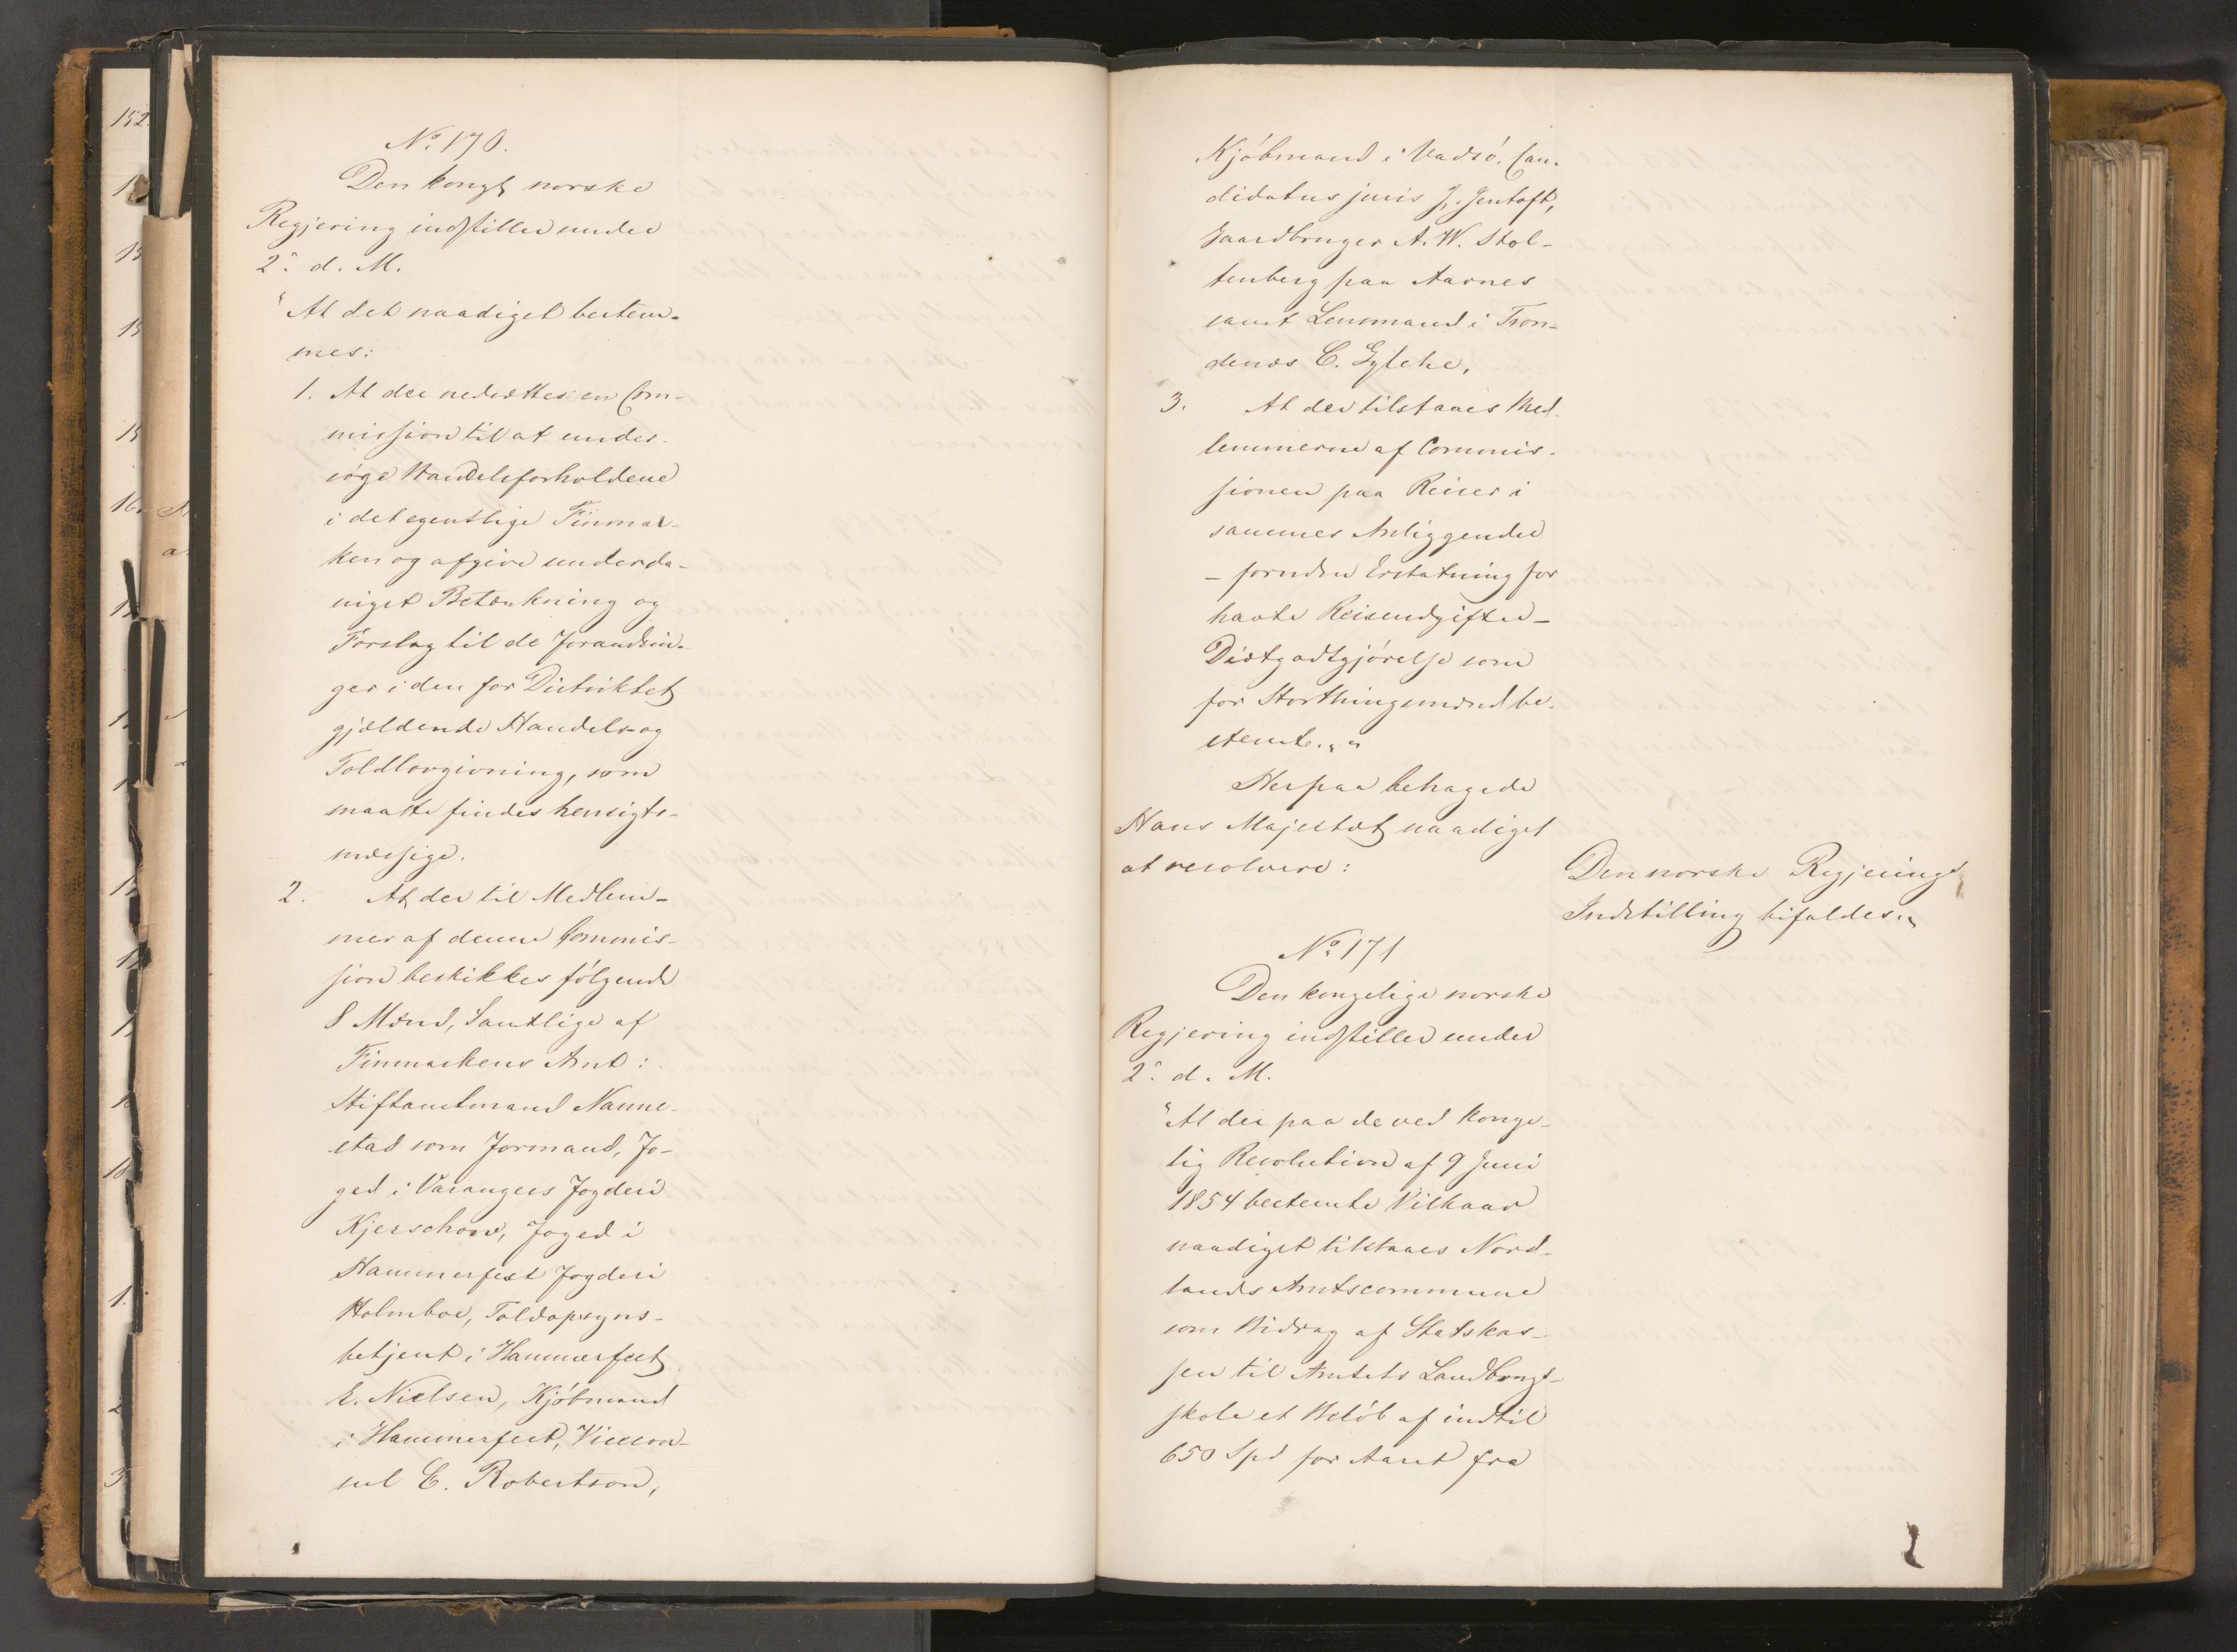 No. 170.
Den kongl norske
Regjering indstiller under
2. d. M.
"At det naadigst bestem-
mes:
1. At der nedsættes en Com-
mission til at under-
søge Handelsforholdene
i det egentlige Finmar-
ken og afgive underda-
nigst Betænkning og
Forslag til de Forandrin-
ger i den for Distriktet
gjældende Handels- og
Toldlovgivning, som
maatte findes hensigts-
mæssige.
2. At der til Medlem-
mer af denne Commis-
sion beskikkes følgende
8 Mænd, Samtlige af
Finmarkens Amt:
Stiftamtmand Nanne-
stad som Formand, Fo-
ged i Varangers Fogderi
Kjerschow, Foged i
Hammerfest Fogderi
Holmboe, Toldopsyns-
betjent i Hammerfest
E. Nielsen, Kjøbmand
i Hammerfest, Vicecon-
sul C. Robertson,
Kjøbmand i Vadsø, Can-
didatus juris J. Jentoft,
Gaardbruger A. W. Stol-
tenberg paa Aarnes
samt Lensmand i Tron-
denæs C. Gylche,
3. At der tilstaaes Med-
lemmerne af Commis-
sionen paa Reiser i
sammes Anliggender
- foruden Erstatning for
havte Reiseudgifter -
Diætgodtgjørelse som
for Storthingsmænd be-
stemt."
Herpaa behagede
Hans Majestæt naadigst
at resolvere:
Den norske Regjerings
Indstilling bifaldes.
No. 171
Den kongelige norske
Regjering indstiller under
2. d. M.
"At der paa de ved konge-
lig Resolution af 9 Juni
1854 bestemte Vilkaar
naadigst tilstaaes Nord-
lands Amtscommune
som Bidrag af Statskas-
sen til Amtets Landbrugs-
skole et Beløb af indtil
650 Spd for Aaret fra